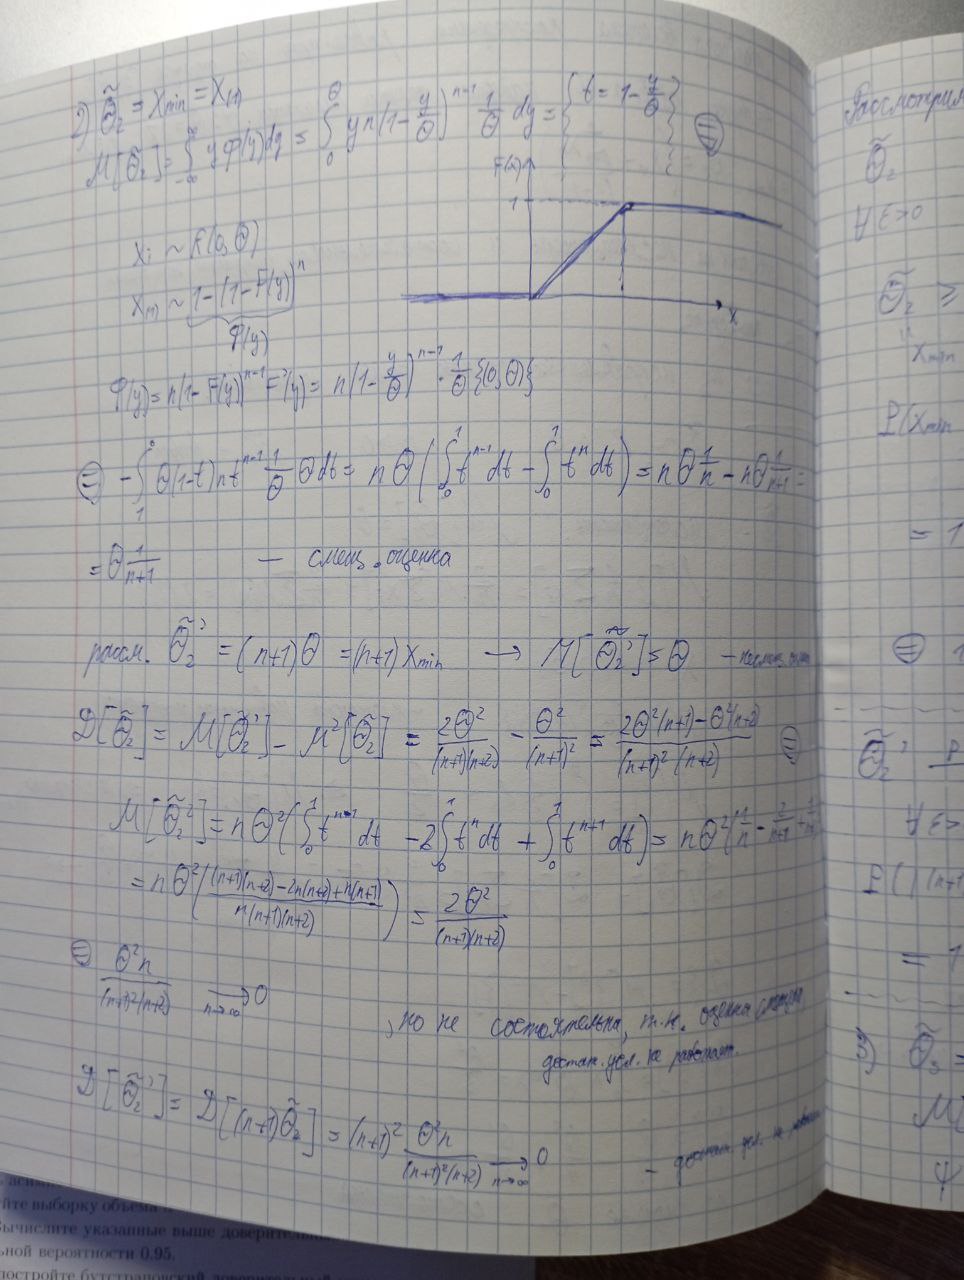 2) Θ̃₂ = x_min = x_(1)
M[Θ̃₂] = ∫_{-∞}^{∞} y φ(y)dy = ∫_0^Θ y n(1 - y/Θ)^{n-1} 1/Θ dy = { t = 1 - y/Θ } ⊜
F(x)
1
x
x_i ~ R(0, Θ)
x_(1) ~ 1-(1-F(y))^n
Φ(y)
φ(y) = n(1-F(y))^{n-1} F'(y) = n(1 - y/Θ)^{n-1} · 1/Θ {(0, Θ)}
⊜ -∫_1^0 Θ(1-t) n t^{n-1} 1/Θ Θ dt = nΘ (∫_0^1 t^{n-1} dt - ∫_0^1 t^n dt) = nΘ 1/n - nΘ 1/(n+1) =
= Θ 1/(n+1) — смещ. оценка
рассм. Θ̃₂' = (n+1)Θ = (n+1) x_min → M[Θ̃₂'] = Θ
D[Θ̃₂] = M[Θ̃₂²] - M²[Θ̃₂] = 2Θ²/((n+1)(n+2)) - Θ²/(n+1)² = (2Θ²(n+1) - Θ²(n+2))/((n+1)²(n+2)) ⊜
M[Θ̃₂²] = nΘ²(∫_0^1 t^{n-1} dt - 2∫_0^1 t^n dt + ∫_0^1 t^{n+1} dt) = nΘ²(1/n - 2/(n+1) +
= nΘ²(((n+1)(n+2) - 2n(n+2) + n(n+1))/(n(n+1)(n+2))) = 2Θ²/((n+1)(n+2))
⊜ Θ²n/((n+1)²(n+2)) →_{n→∞} 0
, но не состоятельна, т.к. оценка
достат. усл. не работает.
D[Θ̃₂'] = D[(n+1)Θ̃₂] = (n+1)² Θ²n/((n+1)²(n+2)) →_{n→∞} 0 — достат. усл. не
Рассмотрим
Θ̃₂
∀ε>0
Θ̃₂ ≥
x_min
P(x_min
= 1
⊜ 1
Θ̃₂' P
∀ε>
P(|(n+1
= 1
3) Θ̃₃ =
M[
ψ
йте выборку объема
Вычислите указанные выше доверительн
ьной вероятности 0.95.
постройте бутстраповский доверительный